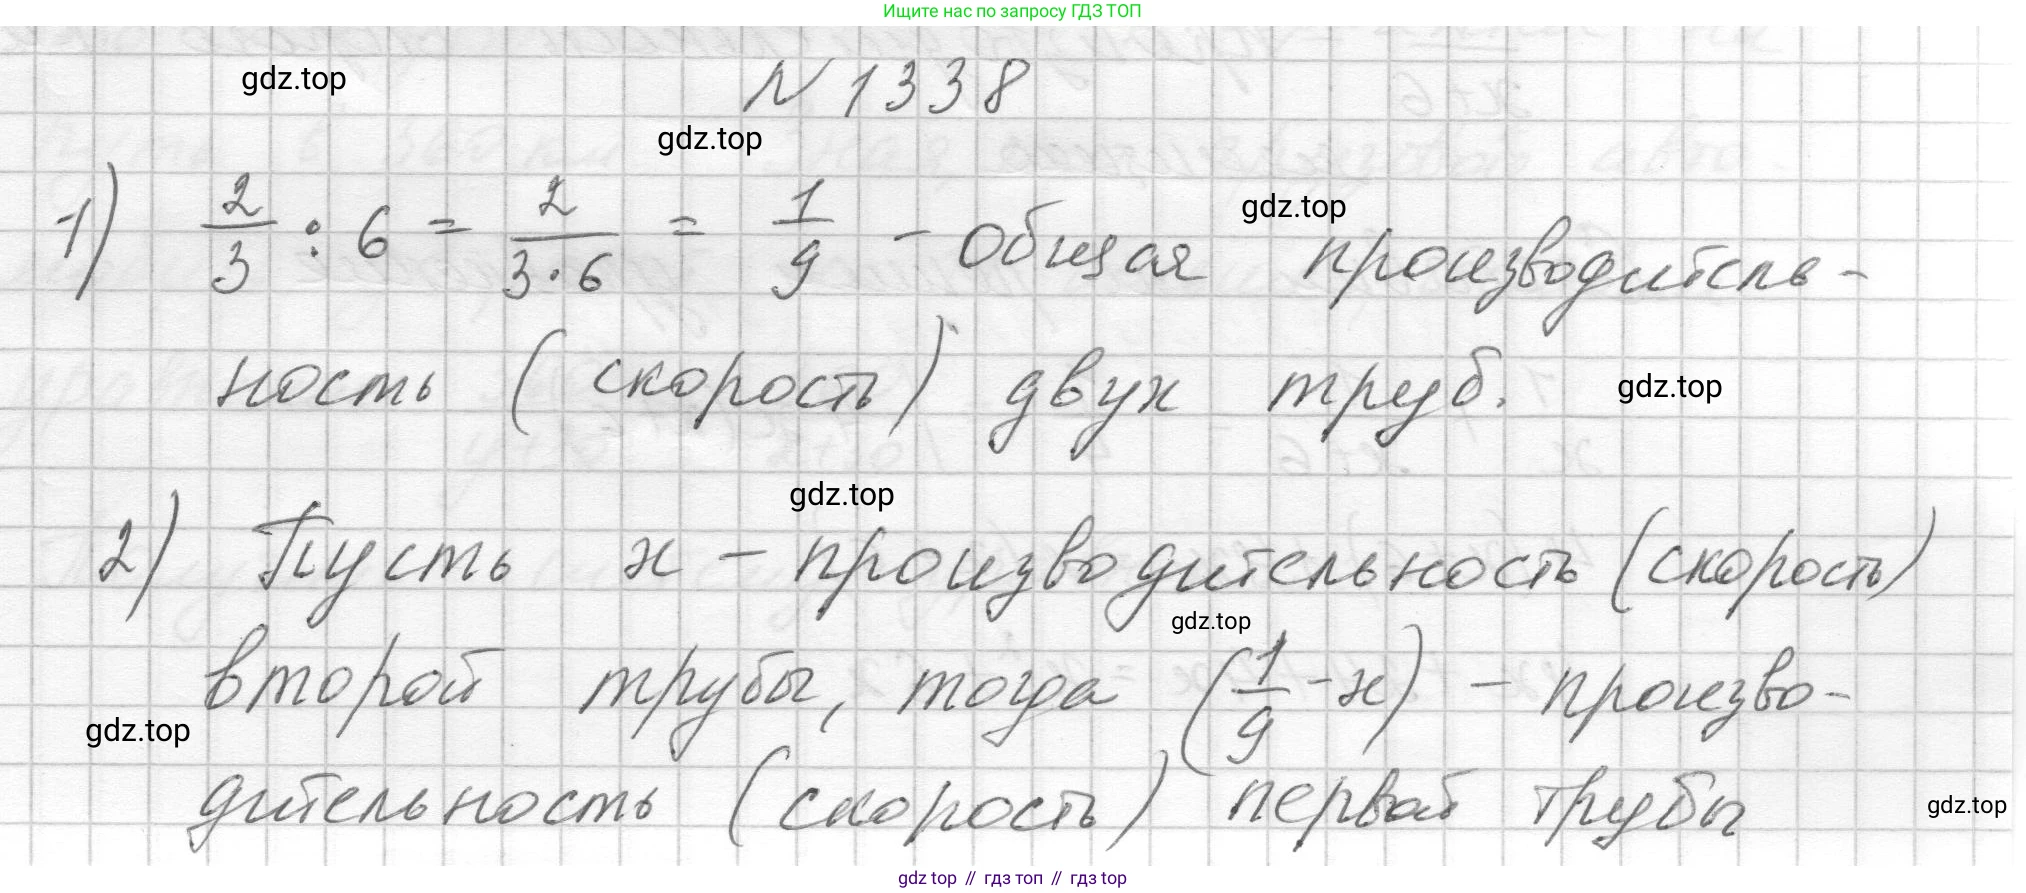 Ищите нас по запросу ГДЗ ТОП
gdz.top
N 1338
gdz.top
1) 2/3 : 6 = 2/(3·6) = 1/9 - общая производитель-
gdz.top
ность (скорость) двух труб.
gdz.top
gdz.top
2) Пусть х - производительность (скорость)
gdz.top
второй трубы, тогда (1/9 - х) - произво-
gdz.top
дительность (скорость) первой трубы
gdz.top
gdz top // гдз топ // gdz top